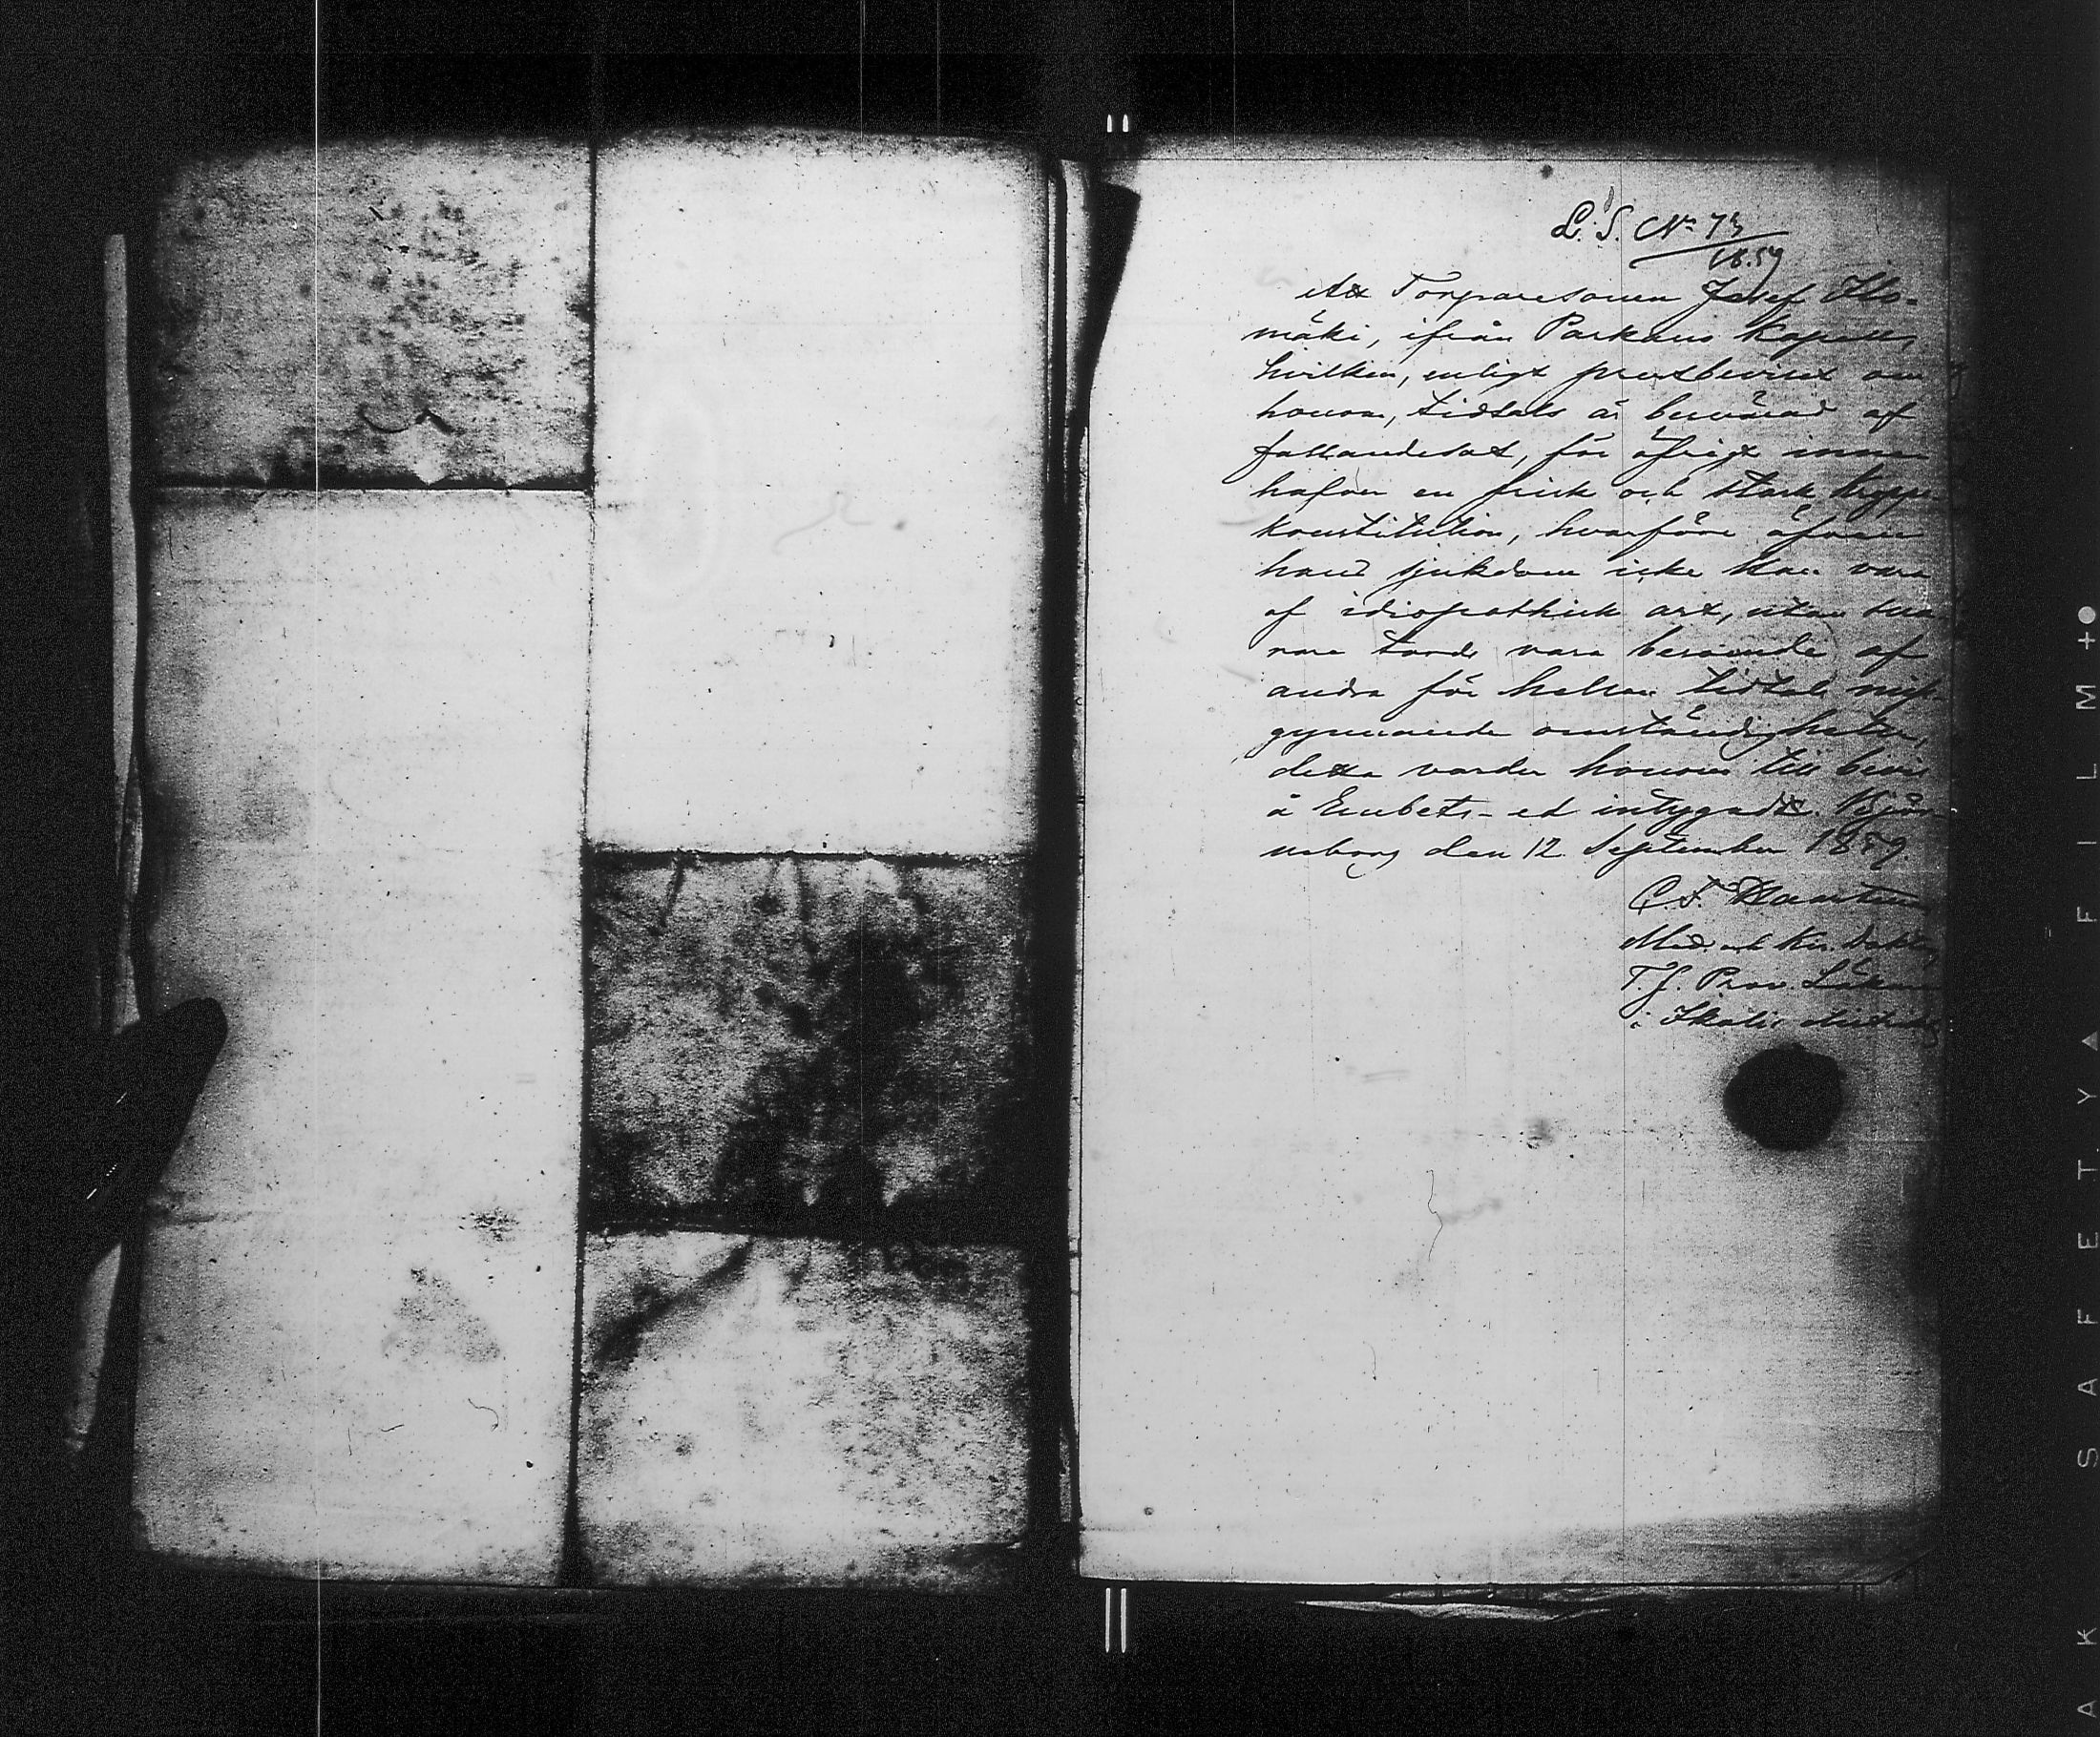 L. S. No 73
1859
Att Torparesonen Josef Ylis-
mäki, ifrån Parkano Kapell,
hvilken, enligt prestbeviset om
honom, tidtals är besvärad af
fallandesot, för öfrigt inne-
hafver en frisk och stark kropps-
konstitution, hvarföre äfven
hans sjukdom icke kan vara
af idiopathisk art, utan sna-
rare torde vara beroende af
andra för helsan tidtals miss-
gynnande omständigheter,
detta varder honom till bevis
å Embets-ed intygadt. Björ-
neborg den 12 September 1859.
C. F.
Med. och Kir. Doktor
T. f. Prov. Läkare
i Ikalis distrikt
SAFETY FILM